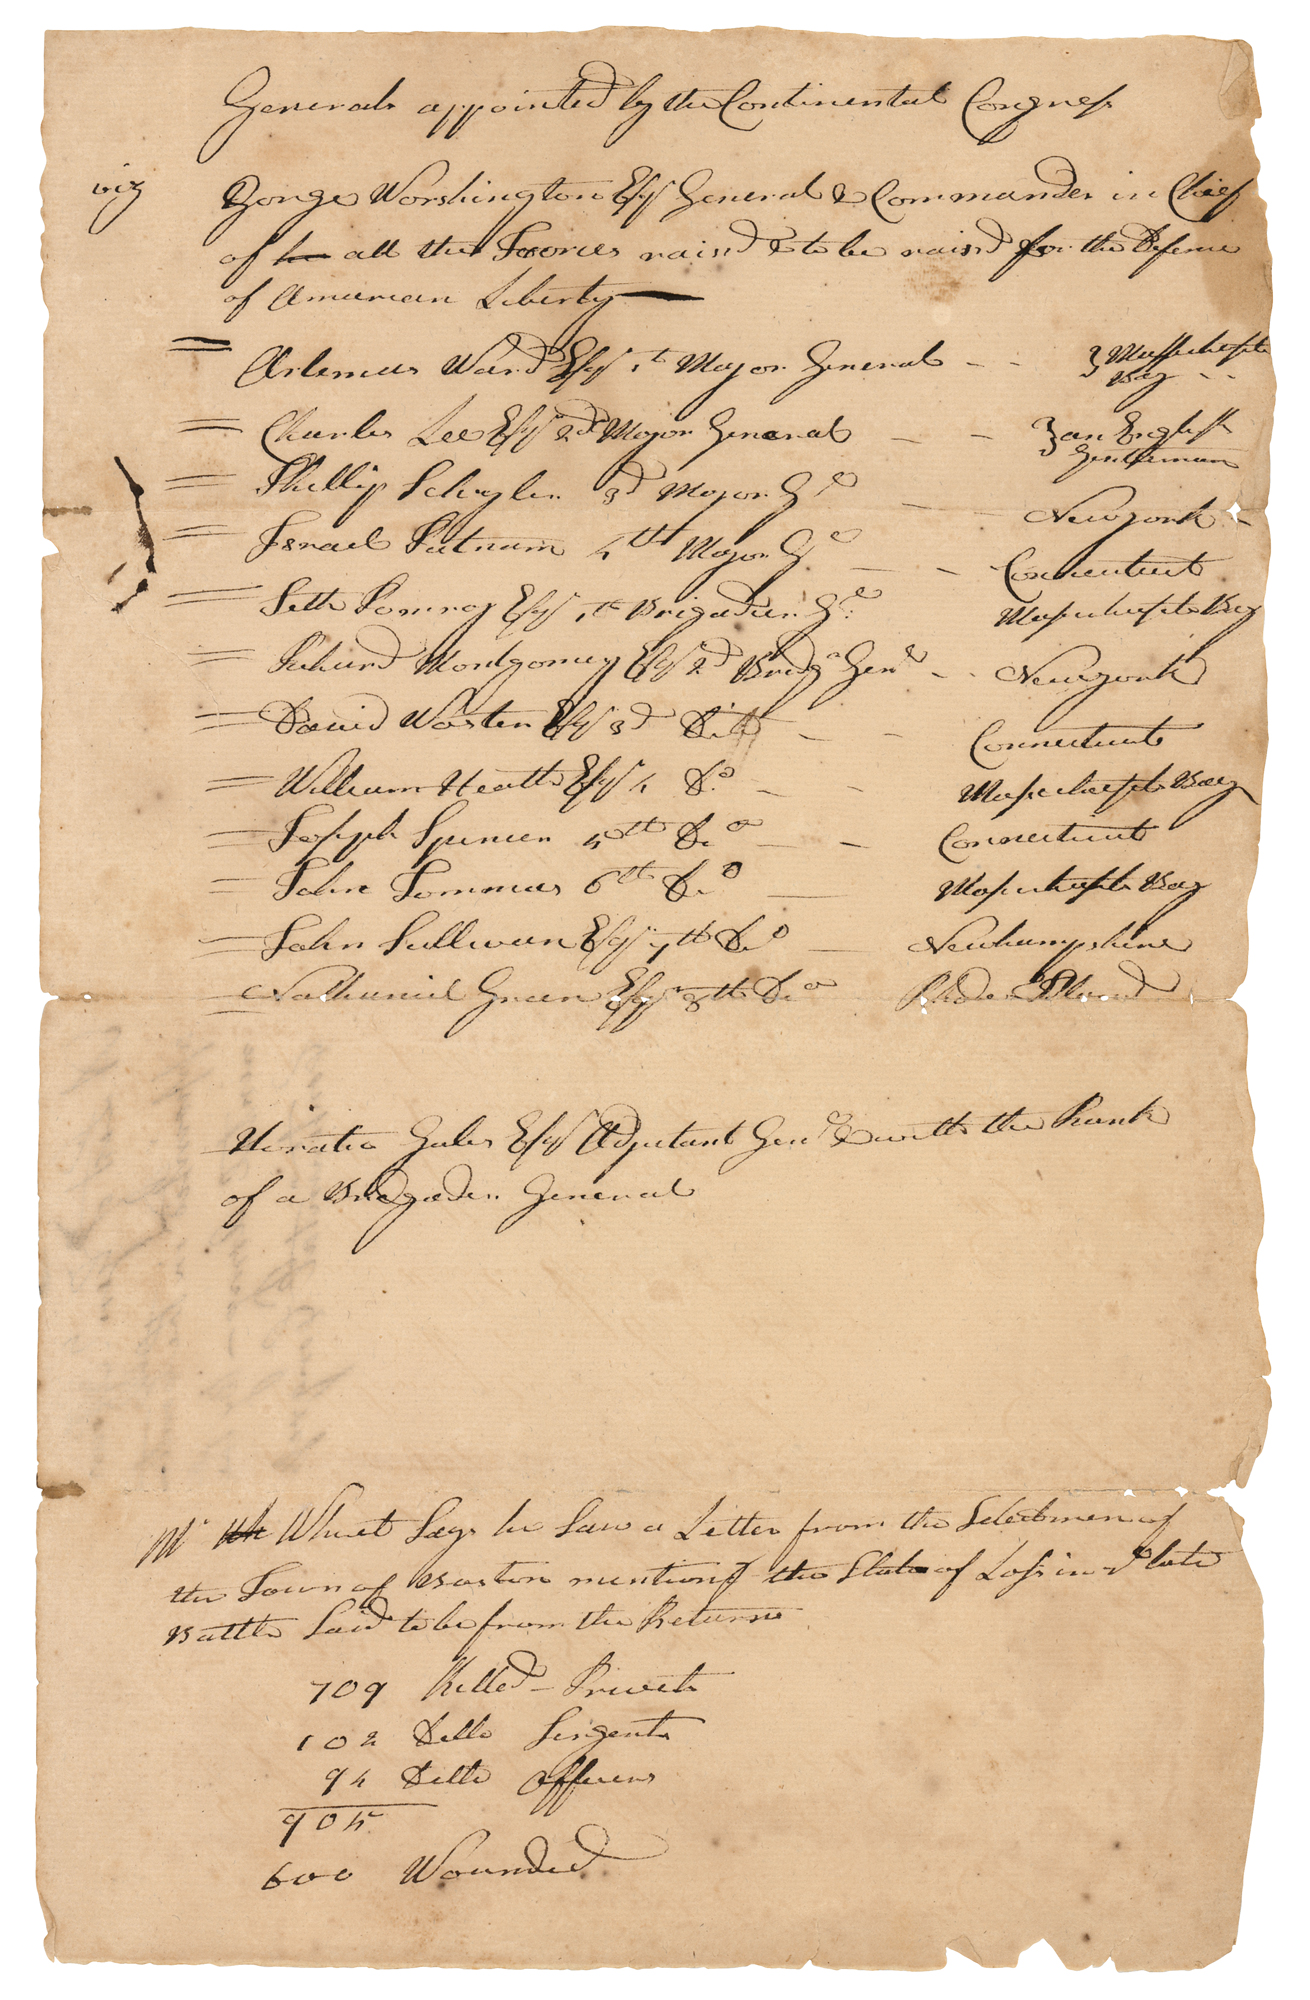 Generals appointed by the Continental Congress
viz Gorge Worshington Esqr General & Commander in Chief
of all the Foorces raisd & to be raisd for the Defence
of American Liberty
Artemus Ward Esqr 1t Major General - - } Massachusetts Bay - -
Charles Lee Esqr 2d Major General - - } an English Gentleman
Phillip Schyler 3d Major Gel - - Newyork -
Israel Putnam 4th Major Gel - - Connecticut
Seth Pomroy Esqr 1t Brigadier Gel Massachusetts Bay
Richard Montgomery Esqr 2d Bridgr Genl - - Newyork
David Worster Esqr 3d Ditto - - Connecticut
William Heath Esqr 4 Do - - Massachusetts Bay
Joseph Spencer 5th Do - - Connecticut
John Tommas 6th Do - Massachusetts Bay
John Sullivan Esqr 7th Do - Newhampshire
Nathaniel Green Esqr 8th Do Rhode Island
Horatio Gates Esqr Adjutant Genl & with the Rank
of a Bridgader General
Mr Wheet Says he Saw a Letter from the Selectmen of
the Town of Boston mentiong the State of Loss in d late
Battle Said to be from the Returns
709 Killed - Privets
102 Ditto Sergents
94 Ditto Officers
905
600 Wounded